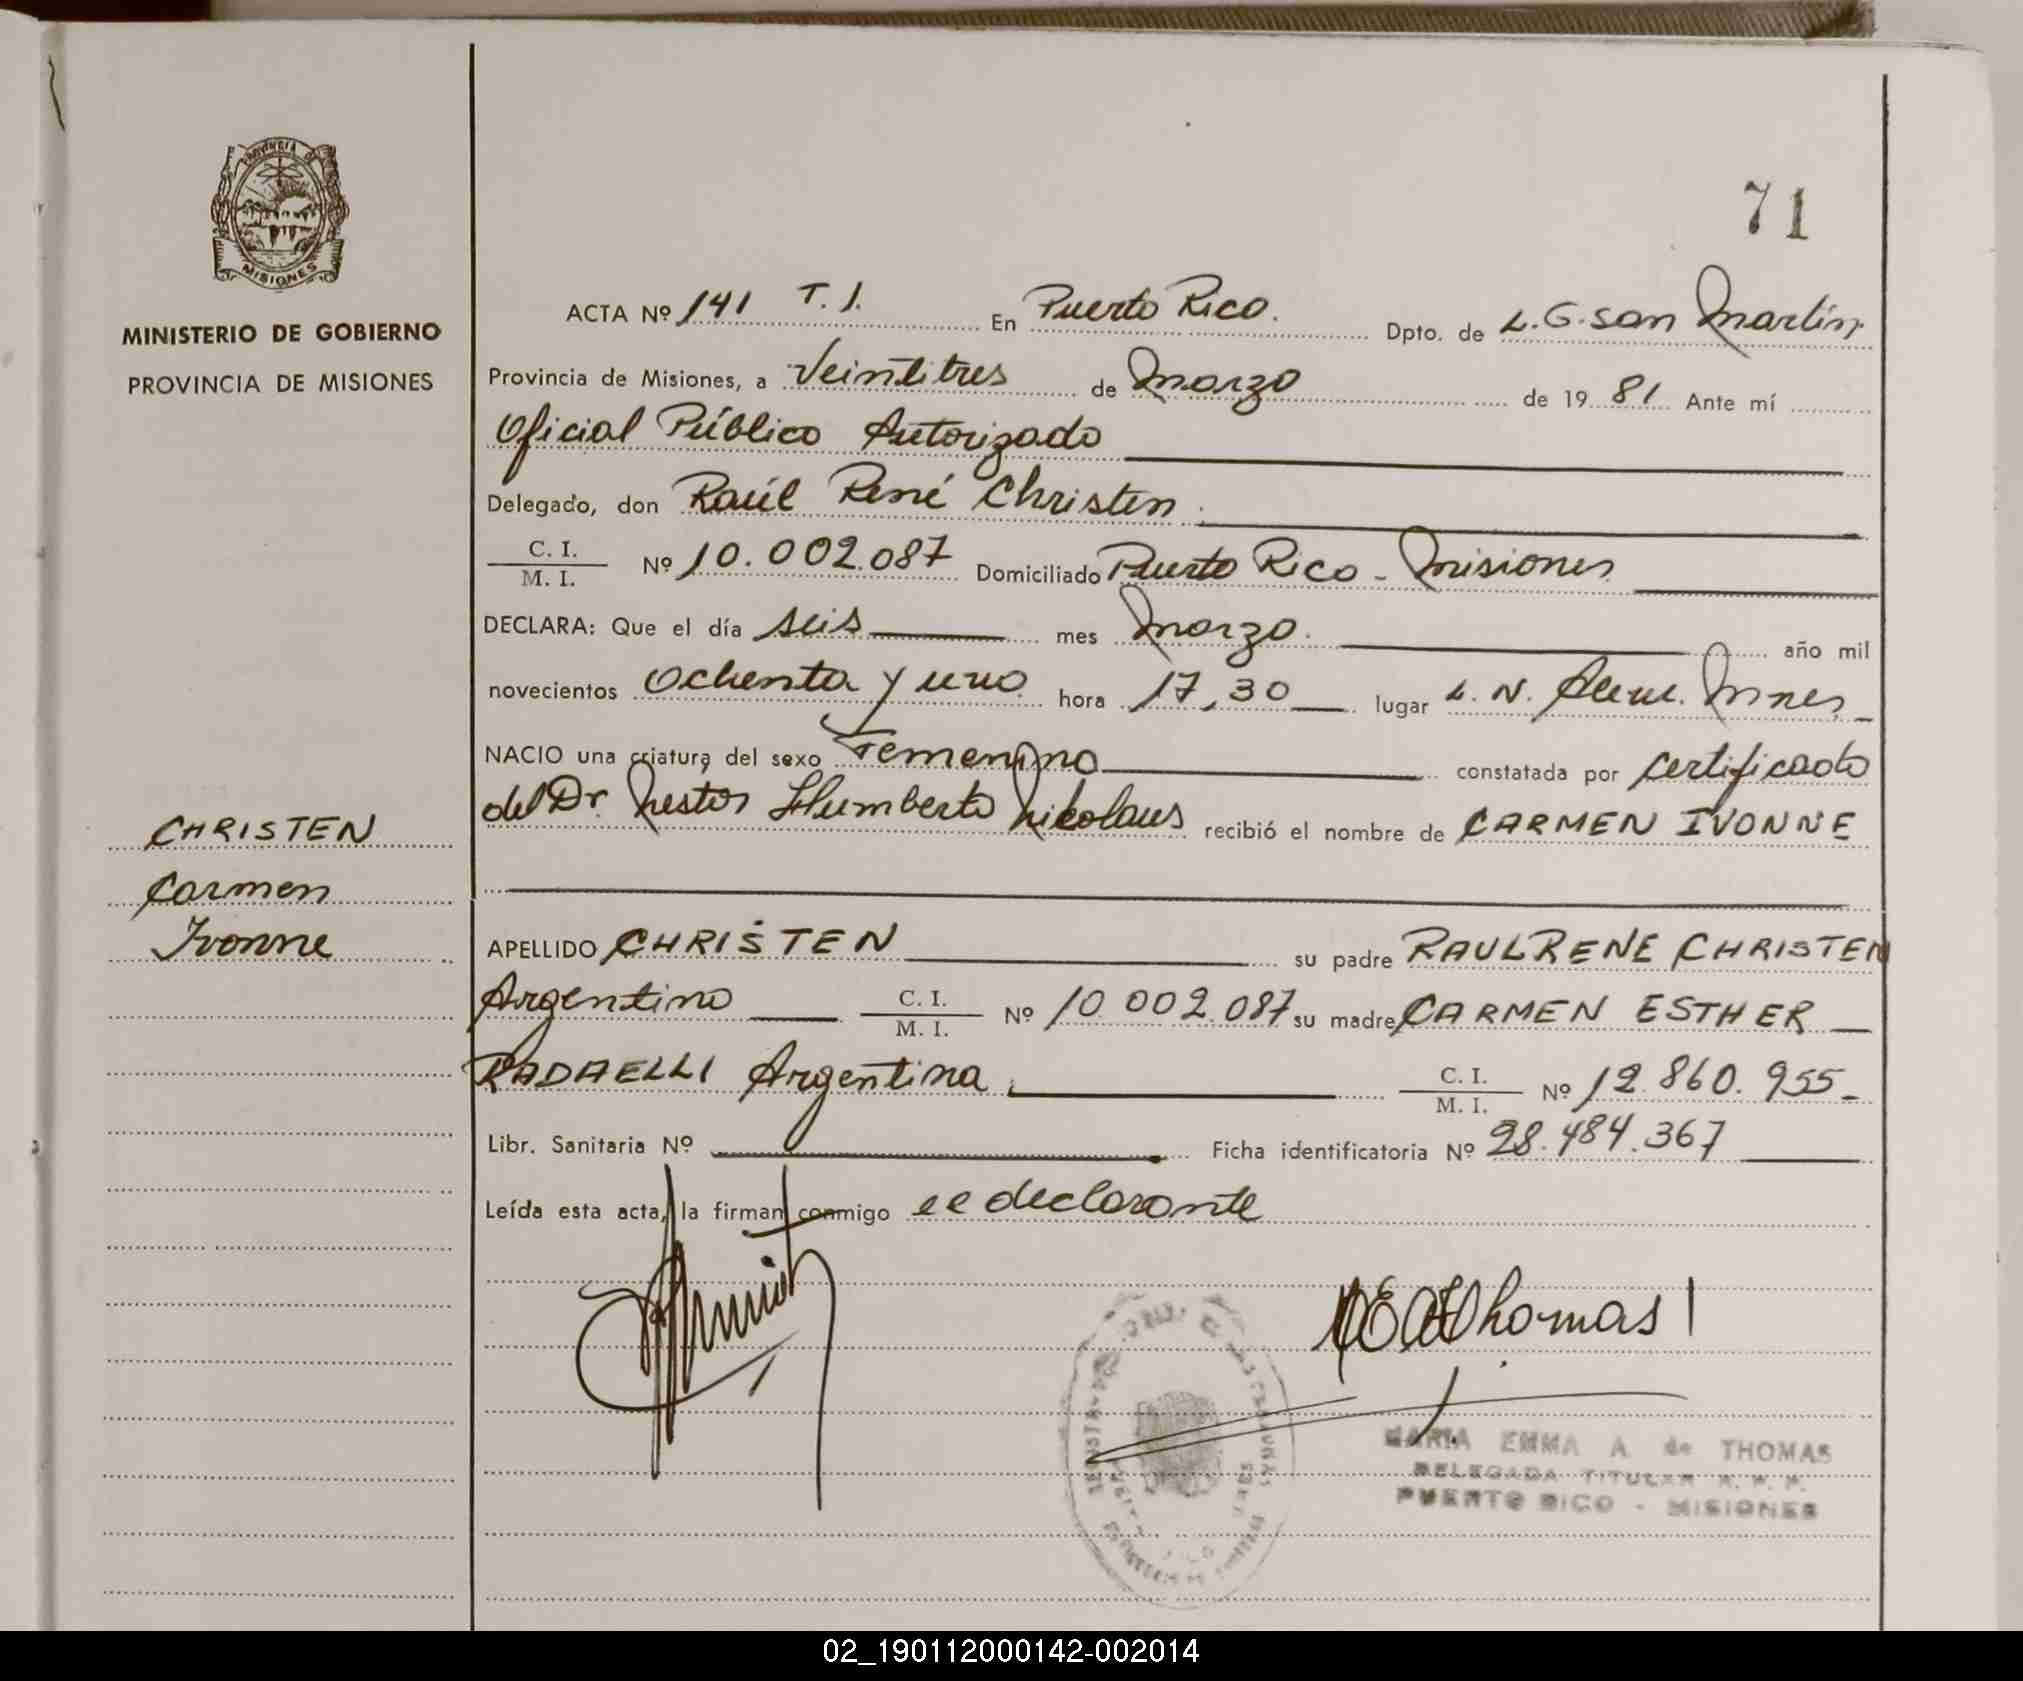 PROVINCIA DE
MISIONES
MINISTERIO DE GOBIERNO
PROVINCIA DE MISIONES
CHRISTEN
Carmen
Ivonne
71
ACTA Nº 141 T.I. En Puerto Rico. Dpto. de L.G.San Martín.
Provincia de Misiones, a Veintitres de Marzo de 1981 Ante mí
Oficial Público Autorizado
Delegado, don Raúl René Christen
C. I. / M. I. Nº 10.002.087 Domiciliado Puerto Rico - Misiones
DECLARA: Que el día seis mes Marzo. año mil
novecientos Ochenta y uno hora 17,30 lugar L. N. Alem. Mnes,
NACIO una criatura del sexo Femenino constatada por certificado
del Dr. Nestor Humberto Nikolaus recibió el nombre de CARMEN IVONNE
APELLIDO CHRISTEN su padre RAUL RENE CHRISTEN
Argentino C. I. / M. I. Nº 10 002.087 su madre CARMEN ESTHER
RADAELLI Argentina C. I. / M. I. Nº 12.860.955
Libr. Sanitaria Nº Ficha identificatoria Nº 28.484.367
Leída esta acta, la firman conmigo el declarante
MEAThomas
MARIA EMMA A. de THOMAS
DELEGADA TITULAR R. P. P.
PUERTO RICO - MISIONES
02_190112000142-002014